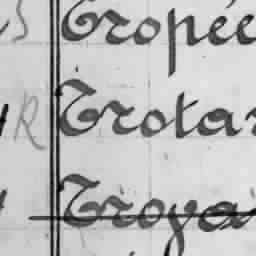 Tropée
R Trotar
Troya